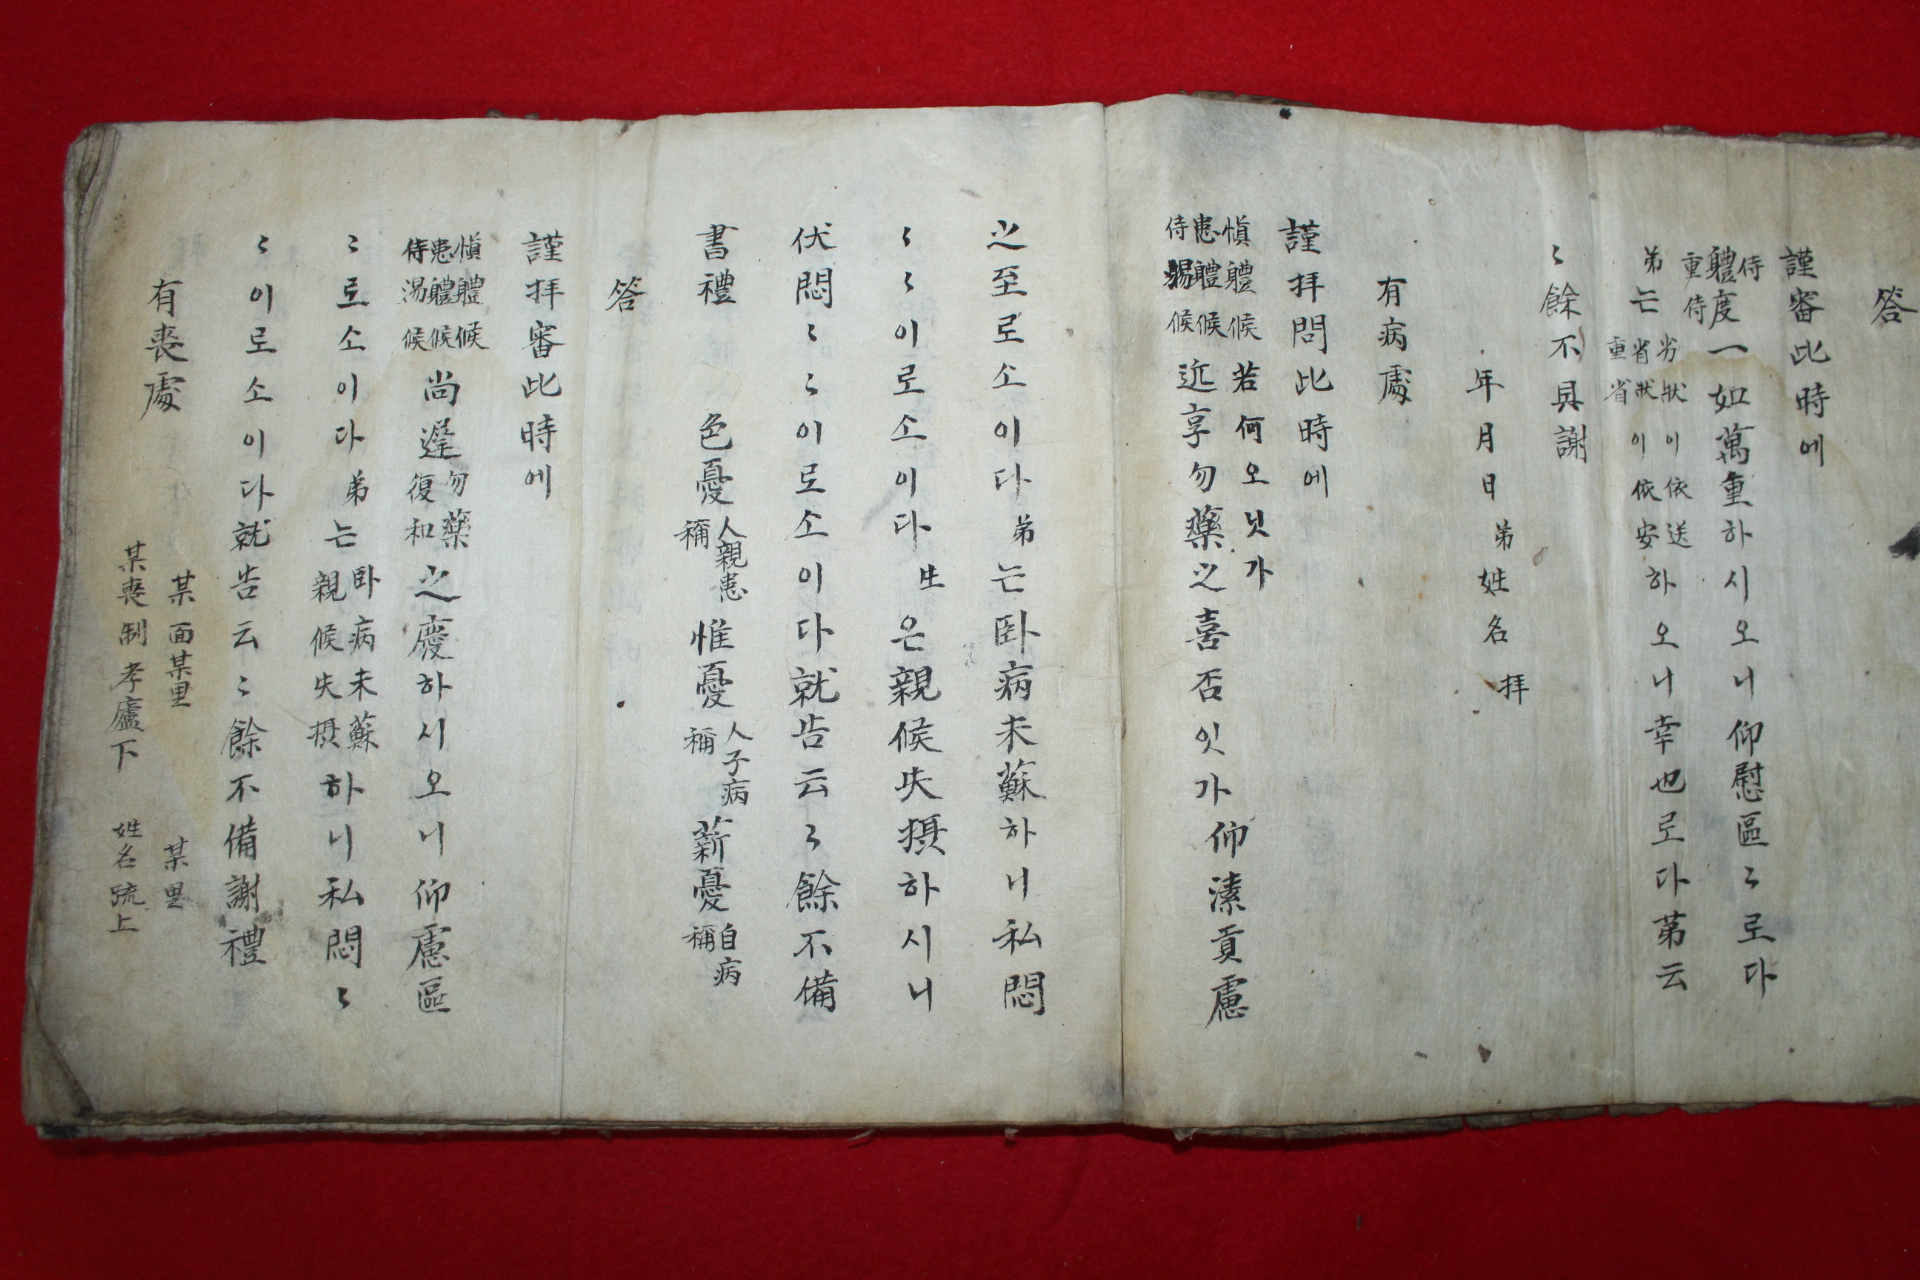 答
謹審此時에
侍
重侍
體度一如萬重하시오니仰慰區〻로다
弟는
劣狀이依送
省狀이依安
重省
하오니幸也로다第云
〻餘不具謝
年月日弟姓名拜
有病處
謹拜問此時에
愼體候
患體候
侍湯候
若何오닛가
近享勿藥之喜否잇가仰溱貢慮
之至로소이다弟는卧病未蘇하니私悶
〻〻이로소이다生은親候失攝하시니
伏悶〻〻이로소이다就告云〻餘不備
書禮
色憂
人親患稱
惟憂
人子病稱
薪憂
自病稱
答
謹拜審此時에
愼體候
患體候
侍湯候
尙遲
勿藥
復和
之慶하시오니仰慮區
〻로소이다弟는
卧病未蘇
親候失攝
하니私悶〻
〻이로소이다就告云〻餘不備謝禮
有喪處
某面某里 某里
某喪制孝廬下 姓名疏上